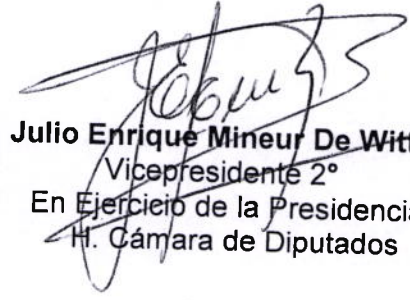 Julio Enrique Mineur De Witt
Vicepresidente 2º
En Ejercicio de la Presidencia
H. Cámara de Diputados